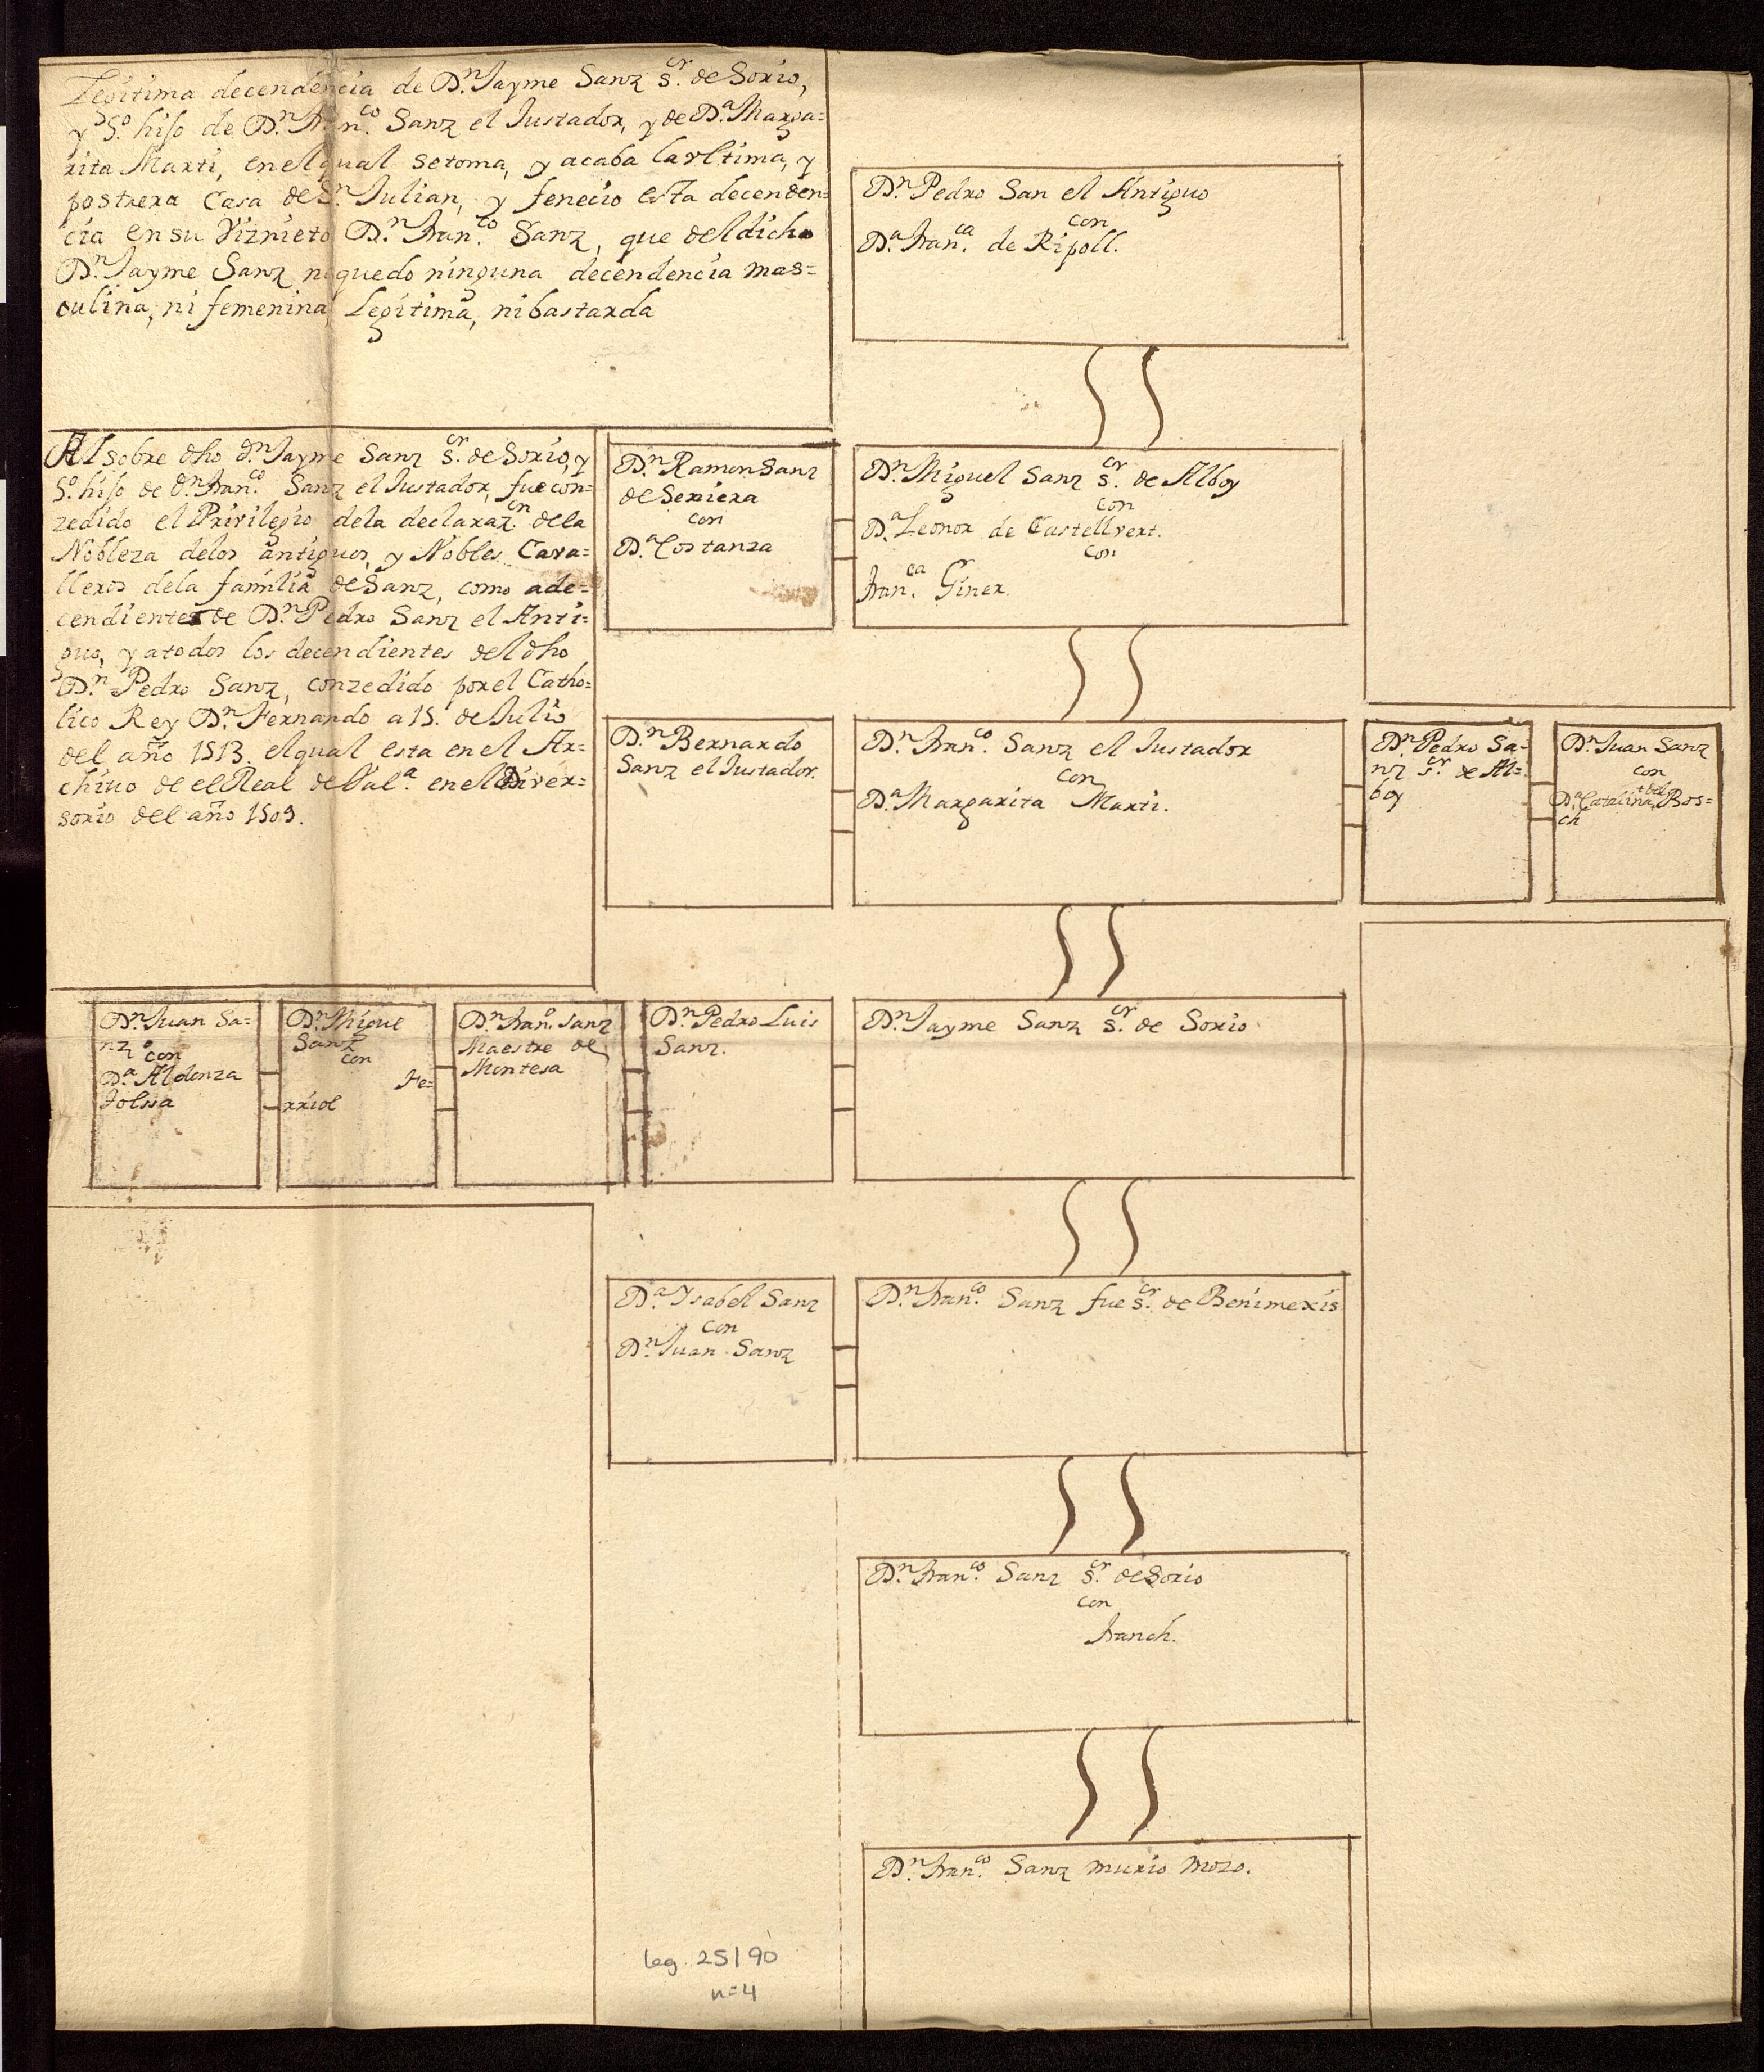 Legitima decendencia de D.ⁿ Jayme Sanz s.ᵒʳ de Sorio,
y 5.º hijo de D.ⁿ Fran.ᶜᵒ Sanz el Justador, y de D.ᵃ Marga=
rita Marti, en el qual se toma, y acaba la vltima, y
postrera Casa de S.ⁿ Julian, y fenecio esta decenden=
cia en su Viznieto D.ⁿ Fran.ᶜᵒ Sanz, que del dicho
D.ⁿ Jayme Sanz no quedo ninguna decendencia mas=
culina, ni femenina Legitima, ni bastarda
D.ⁿ Pedro San el Antiguo
con
D.ᵃ Fran.ᶜᵃ de Ripoll.
Al sobre dho D.ⁿ Jayme Sanz s.ᵒʳ de Sorio, y
5.º hijo de D.ⁿ Fran.ᶜᵒ Sanz el Justador, fue con=
zedido el Privilegio de la declaraz.ᵒⁿ de la
Nobleza de los antiguos, y Nobles Cava=
lleros de la familia de Sanz, como a de=
cendientes de D.ⁿ Pedro Sanz el Anti=
guo, y a todos los decendientes del dho
D.ⁿ Pedro Sanz, conzedido por el Catho=
lico Rey D.ⁿ Fernando a 15. de Julio
del año 1513. el qual esta en el Ar=
chivo de el Real de Val.ᵃ en el Diver=
sorio del año 1503.
D.ⁿ Ramon Sanz
de Seriera
con
D.ᵃ Costanza
D.ⁿ Miguel Sanz s.ᵒʳ de Alboy
con
D.ᵃ Leonor de Castellvert.
con
Fran.ᶜᵃ Giner.
D.ⁿ Bernardo
Sanz el Justador.
D.ⁿ Fran.ᶜᵒ Sanz el Justador
con
D.ᵃ Margarita Marti.
D.ⁿ Pedro Sa=
nz s.ᵒʳ de Al=
boy
D.ⁿ Juan Sanz
con
D.ᵃ Catalina Bos=
ch
D.ⁿ Juan Sa=
nz con
D.ᵃ Aldonza
Jolsia
D.ⁿ Migue
Sanz
con
Fe=
rriol
D.ⁿ Fran.º Sanz
Maestre de
Montesa
D.ⁿ Pedro Luis
Sanz.
D.ⁿ Jayme Sanz s.ᵒʳ de Sorio
D.ᵃ Ysabel Sanz
con
D.ⁿ Juan Sanz
D.ⁿ Fran.ᶜᵒ Sanz fue s.ᵒʳ de Benimexis
D.ⁿ Fran.ᶜᵒ Sanz s.ᵒʳ de Sorio
con
Franch.
D.ⁿ Fran.ᶜᵒ Sanz murio mozo.
leg. 25190
n=4